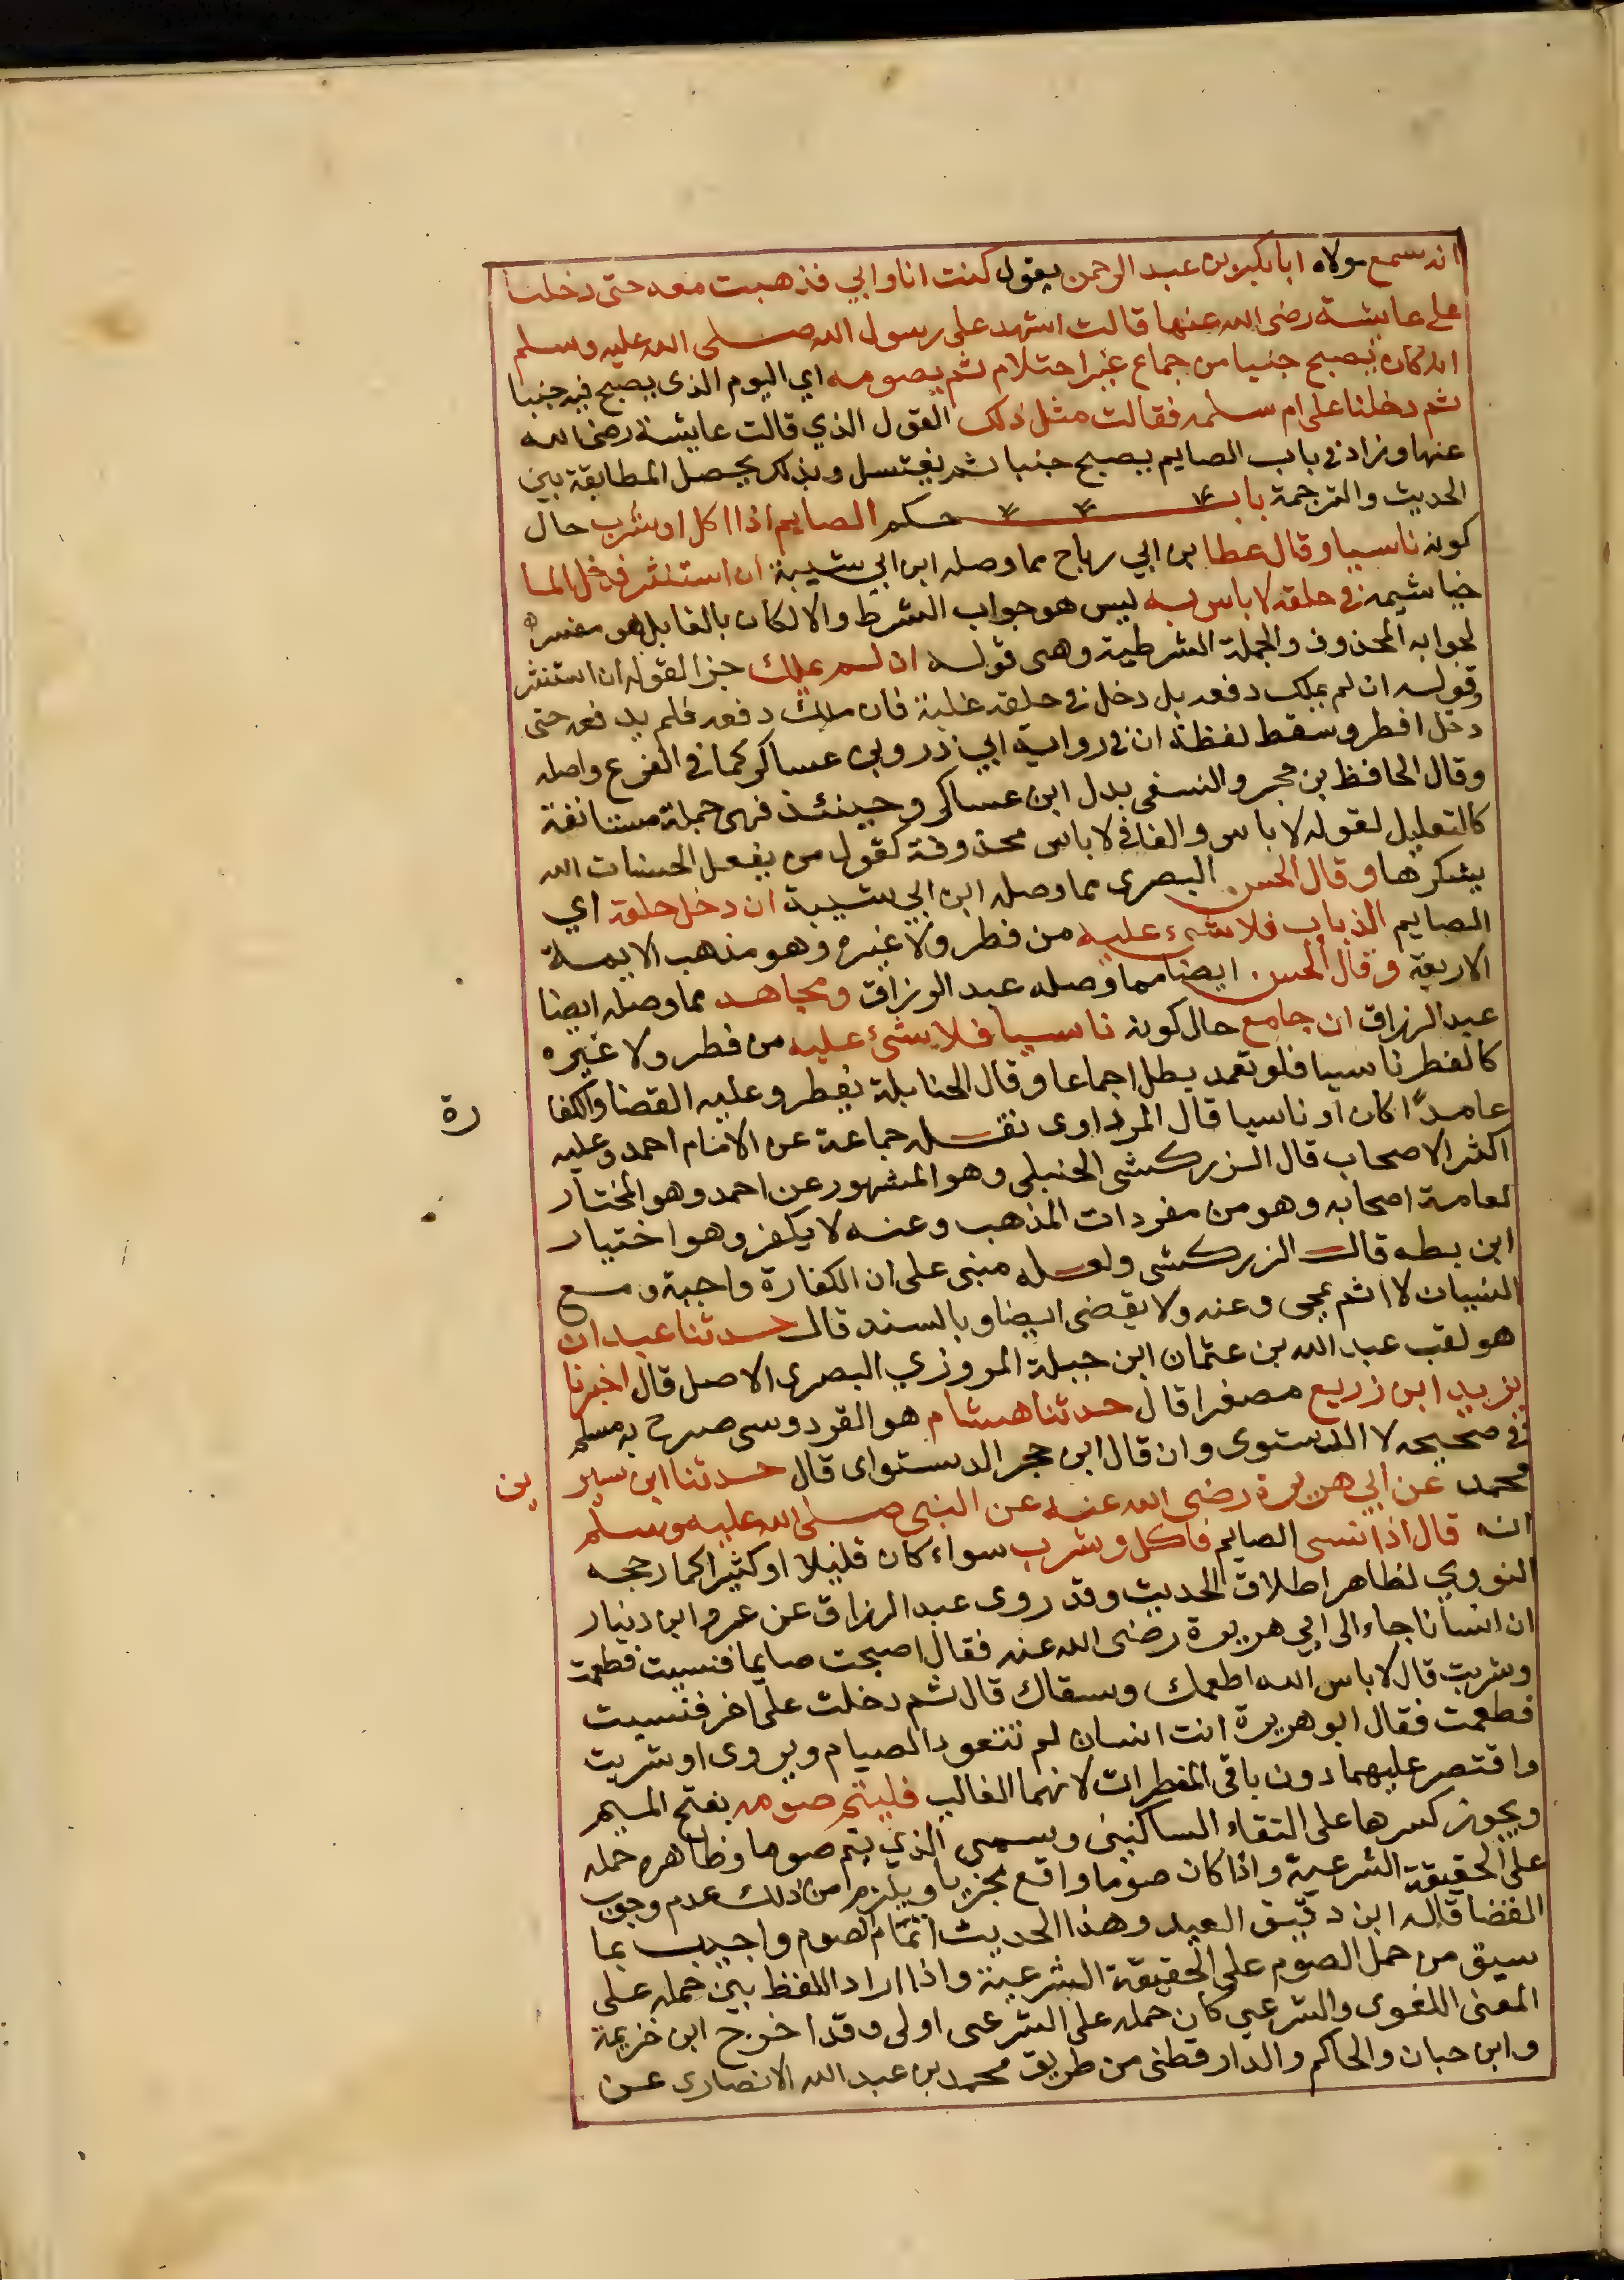 انه سمع مولاه ابا بكر بن عبد الرحمن يقول كنت انا وابي فذهبت معه حتى دخلنا
على عايشة رضى الله عنها قالت اشهد على رسول الله صلى الله عليه وسلم
انه كان يصبح جنبا من جماع غير احتلام ثم يصومه اي اليوم الذى يصبح فيه جنبا
ثم دخلنا على ام سلمه فقالت مثل ذلك القول الذي قالت عايشة رضى الله
عنها وزاد في باب الصايم يصبح جنبا ثم يغتسل وبذلك يحصل المطابقة بين
الحديث والترجمة باب حكم الصايم اذا اكل او شرب حال
كونه ناسيا وقال عطا بن ابي رباح مما وصله ابن ابي شيبة ان استنثر فدخل الما
خياشيمه في حلقه لا باس به ليس هو جواب الشرط والا لكان بالفا بل هو مفسر
لجوابه المحذوف والجملة الشرطية وهى قوله ان لم يملك جزا لقوله ان استنثر
وقوله ان لم يملك دفعه بل دخل في حلقه غلبة فان ملك دفعه فلم يدفعه حتى
دخل افطر وسقط لفظة ان في رواية ابي ذر وبن عساكر كما في الفرع واصله
وقال الحافظ بن حجر والنسفى بدل ابن عساكر وحينئذ فهى جملة مستانفة
كالتعليل لقوله لا باس والفا في لا باس محذوفة كقول من يفعل الحسنات الله
يشكرها وقال الحسن البصرى مما وصله ابن ابي شيبة ان دخل حلقه اي
الصايم الذباب فلا شىء عليه من فطر ولا غيره وهو مذهب الايمة
الاربعة وقال الحسن ايضا مما وصله عبد الرزاق ومجاهد مما وصله ايضا
عبد الرزاق ان جامع حال كونه ناسيا فلا شىء عليه من فطر ولا غيره
كالفطر ناسيا فلو تعمد بطل اجماعا وقال الحنابلة يفطر وعليه القضا والكفا
رة
عامدا كان او ناسيا قال المرداوى نقله جماعة عن الامام احمد وعليه
اكثر الاصحاب قال الزركشى الحنبلى وهو المشهور عن احمد وهو المختار
لعامة اصحابه وهو من مفردات المذهب وعنه لا يكفر وهو اختيار
ابن بطه قال الزركشى ولعله مبنى على ان الكفارة واجبة ومع
النسيان لا اثم يمحى وعنه ولا يقضى ايضا وبالسند قال حدثنا عبدان
هو لقب عبد الله بن عثمان ابن جبلة المروزي البصرى الاصل قال اخبرنا
يزيد ابن زريع مصغرا قال حدثنا هشام هو القردوسى صرح به مسلم
في صحيحه لا الدستوى وان قال ابن حجر الدستواى قال حدثنا ابن سير
ين
محمد عن ابي هريرة رضى الله عنه عن النبى صلى الله عليه وسلم
انه قال اذا نسى الصايم فاكل وشرب سواء كان قليلا او كثيرا كما رجحه
النووي لظاهر اطلاق الحديث وقد روى عبد الرزاق عن عمرو ابن دينار
ان انسانا جاء الى ابي هريرة رضى الله عنه فقال اصبحت صايما فنسيت فطعمت
وشربت قال لا باس الله اطعمك وسقاك قال ثم دخلت على اخر فنسيت
فطعمت فقال ابو هريرة انت انسان لم تتعود الصيام ويروى او شربت
واقتصر عليهما دون باقى المفطرات لانهما الغالب فليتم صومه بفتح الميم
ويجوز كسرها على التقاء الساكنين وسمى الذي يتم صوما وظاهره حمله
على الحقيقة الشرعية واذا كان صوما واقع مجزيا ويلزم من ذلك عدم وجوب
القضا قاله ابن دقيق العيد وهذا الحديث اتمام الصوم واجيب بما
سبق من حمل الصوم على الحقيقة الشرعية واذا اراد اللفظ بين حمله على
المعنى اللغوى والشرعي كان حمله على الشرعى اولى وقد اخرج ابن خزيمة
وابن حبان والحاكم والدارقطنى من طريق محمد بن عبد الله الانصارى عن